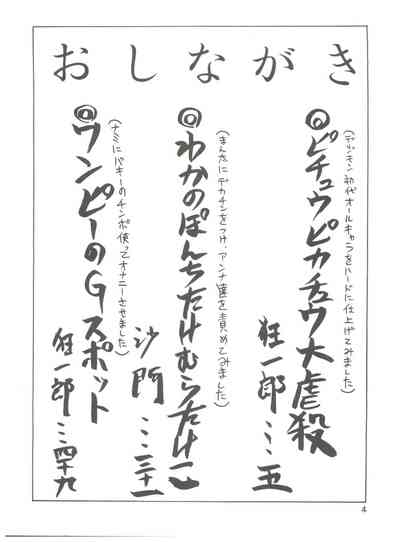 おしながき
(デジモン初代オールキャラをハードに仕上げてみました)
◎ピチュウピカチュウ大虐殺
狂一郎…五
(まん太にデカチンをつけ、アンナ達を責めてみました)
◎わかのぽんちたけむらたけ
沙門…三十一
(ナミにバギーのチンポ使ってオナニーさせました)
◎ワンピーのGスポット
狂一郎…四十九
4